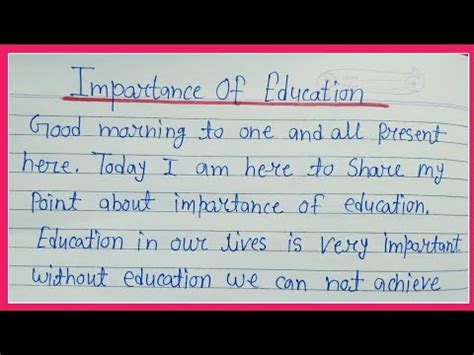 Impartance Of Education
Good morning to one and all Present
here. Today I am here to Share my
Point about impartance of education.
Education in our lives is very Important
without education we can not achieve